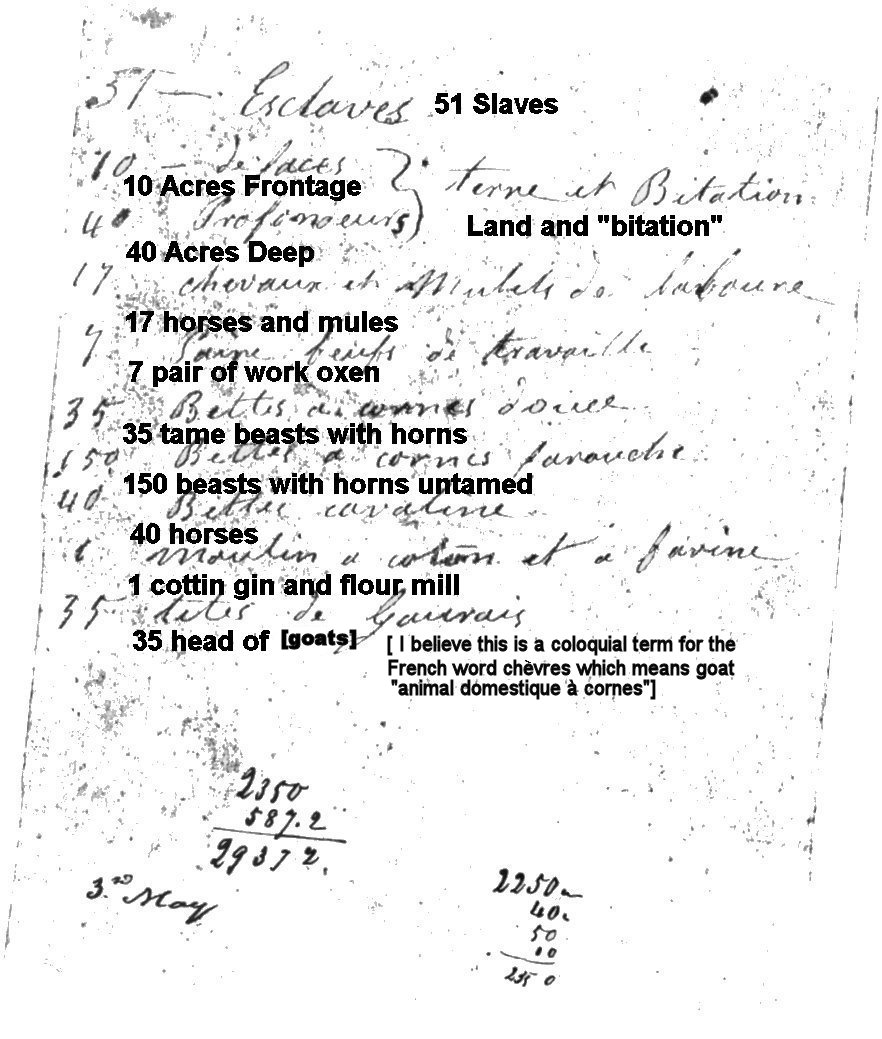 51 — Esclaves 51 Slaves
10 — de faces
10 Acres Frontage
terre et Bitation
40 Profondeurs
Land and "bitation"
40 Acres Deep
17 chevaux et Mulets de laboure
17 horses and mules
7 Paire beufs de travaille
7 pair of work oxen
35 Bettes a cornes douce
35 tame beasts with horns
150 Bettes a cornes farouche
150 beasts with horns untamed
40 Bettes cavaline
40 horses
1 moulin a coton et a farine
1 cottin gin and flour mill
35 tetes de
35 head of [goats]
[ I believe this is a coloquial term for the
French word chèvres which means goat
"animal domestique à cornes"]
2350
587.2
2937 2.
3.rd May
2250
40
50
10
2350